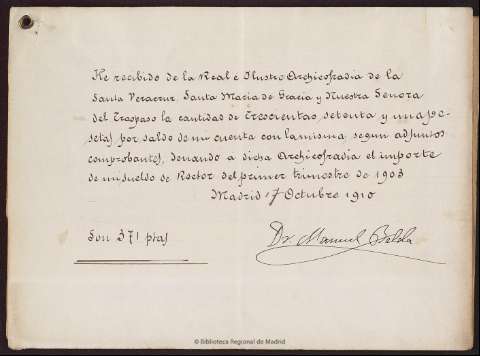 He recibido de la Real é Ilustre Archicofradia de la
Santa Veracruz, Santa Maria de Gracia y Nuestra Senora
del Traspaso la cantidad de Trescientas setenta y una pe-
setas por saldo de mi cuenta con la misma segun adjuntos
comprobantes, donando a dicha Archicofradia el importe
de mi sueldo de Rector del primer trimestre de 1903
Madrid 7 Octubre 1910
Son 371 ptas
Dr. Manuel Belda
© Biblioteca Regional de Madrid